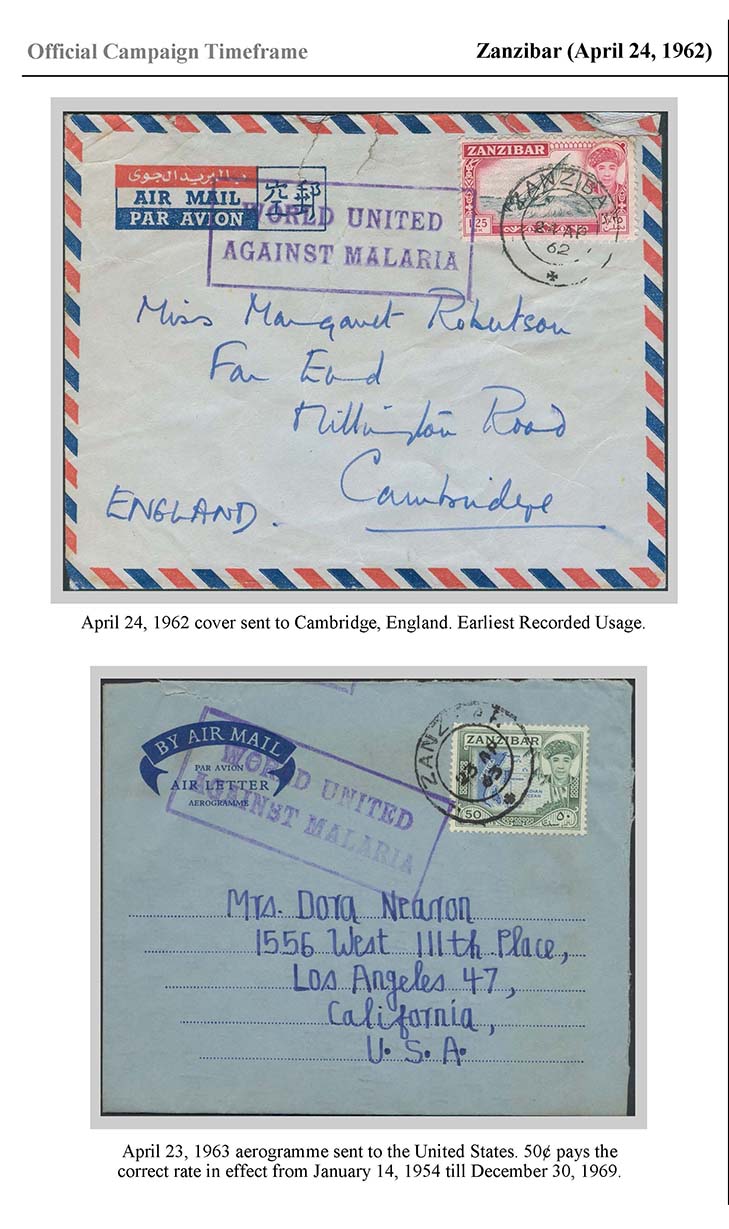 Official Campaign Timeframe Zanzibar (April 24, 1962)
البريد الجوى
AIR MAIL
PAR AVION
空郵
WORLD UNITED
AGAINST MALARIA
ZANZIBAR
1.25
ZANZIBA
AP
62
Miss Margaret Robertson
Far End
Millington Road
Cambridge
ENGLAND.
April 24, 1962 cover sent to Cambridge, England. Earliest Recorded Usage.
BY AIR MAIL
PAR AVION
AIR LETTER
AEROGRAMME
WORLD UNITED
AGAINST MALARIA
ZANZIBAR
50
٥٠
23 AP
63
Mrs. Dora Nearron
1556 West 111th Place,
Los Angeles 47,
California,
U. S. A.
April 23, 1963 aerogramme sent to the United States. 50¢ pays the
correct rate in effect from January 14, 1954 till December 30, 1969.